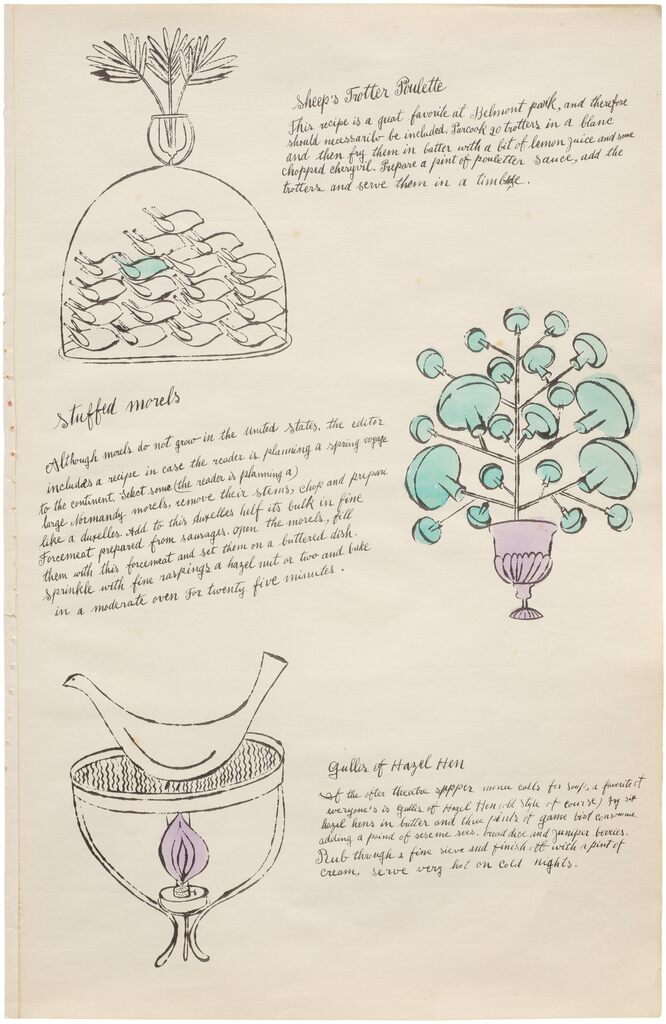 Sheep's Trotter Poulette
This recipe is a great favorite at Belmont park, and therefore
should necessarily be included. Parcook 20 trotters in a blanc
and then fry them in batter with a bit of lemon juice and some
chopped chervil. Prepare a pint of pouletter sauce, add the
trotters and serve them in a timbale.
Stuffed morels
Although morels do not grow in the United States, the editor
includes a recipe in case the reader is planning a spring voyage
to the continent. Select some (the reader is planning a)
large Normandy morels, remove their stems, chop and prepare
like a duxelles. Add to this duxelles helf its bulk in fine
Forcemeat prepared from sausages. Open the morels, fill
them with this forcemeat and set them on a buttered dish.
Sprinkle with fine raspings a hazel nut or two and bake
in a moderate oven For twenty five minutes.
Gullis of Hazel Hen
If the after theatre supper menu calls for soup, a favorite of
everyone's is Gullis of Hazel Hen (old style of course) fry six
hazel hens in butter and three pints of game bird consomme,
adding a pound of seseme sees, bread dice, and juniper berries.
Rub through a fine sieve and finish off with a pint of
cream, serve very hot on cold nights.